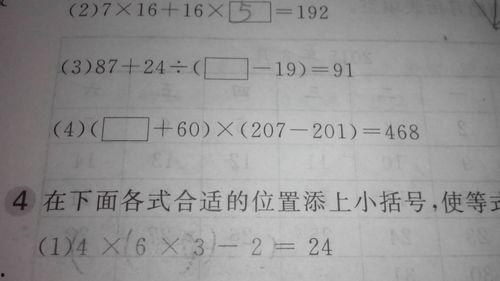 (2)7×16+16×5=192
(3)87+24÷(□-19)=91
(4)(□+60)×(207-201)=468
4 在下面各式合适的位置添上小括号,使等式
(1)4×(6×3)-2=24